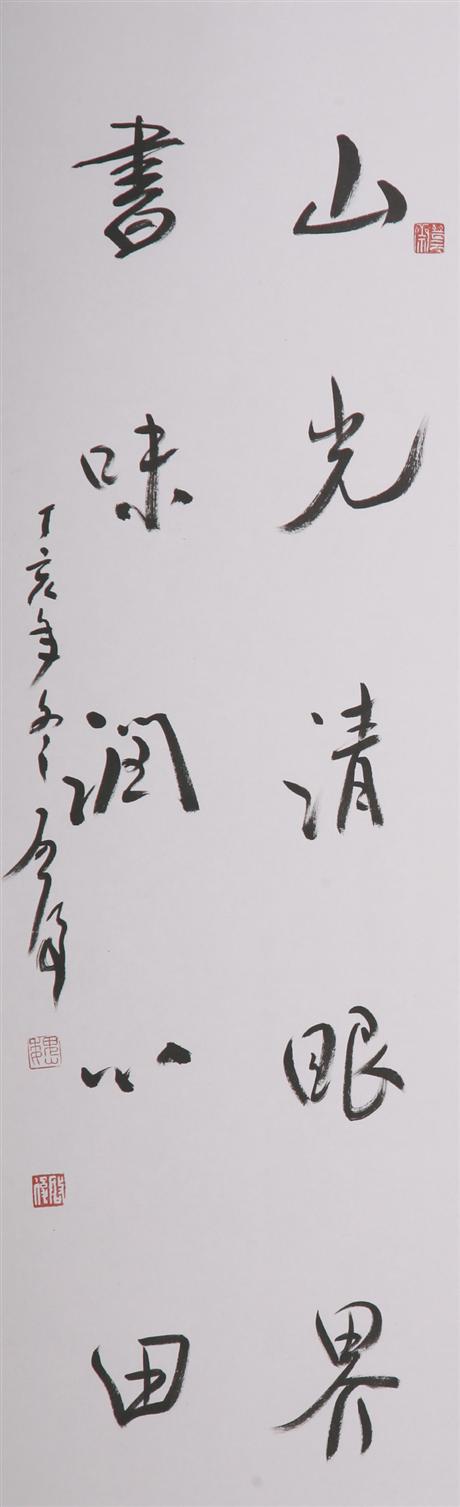 山光清眼界
書味潤心田
丁亥年冬